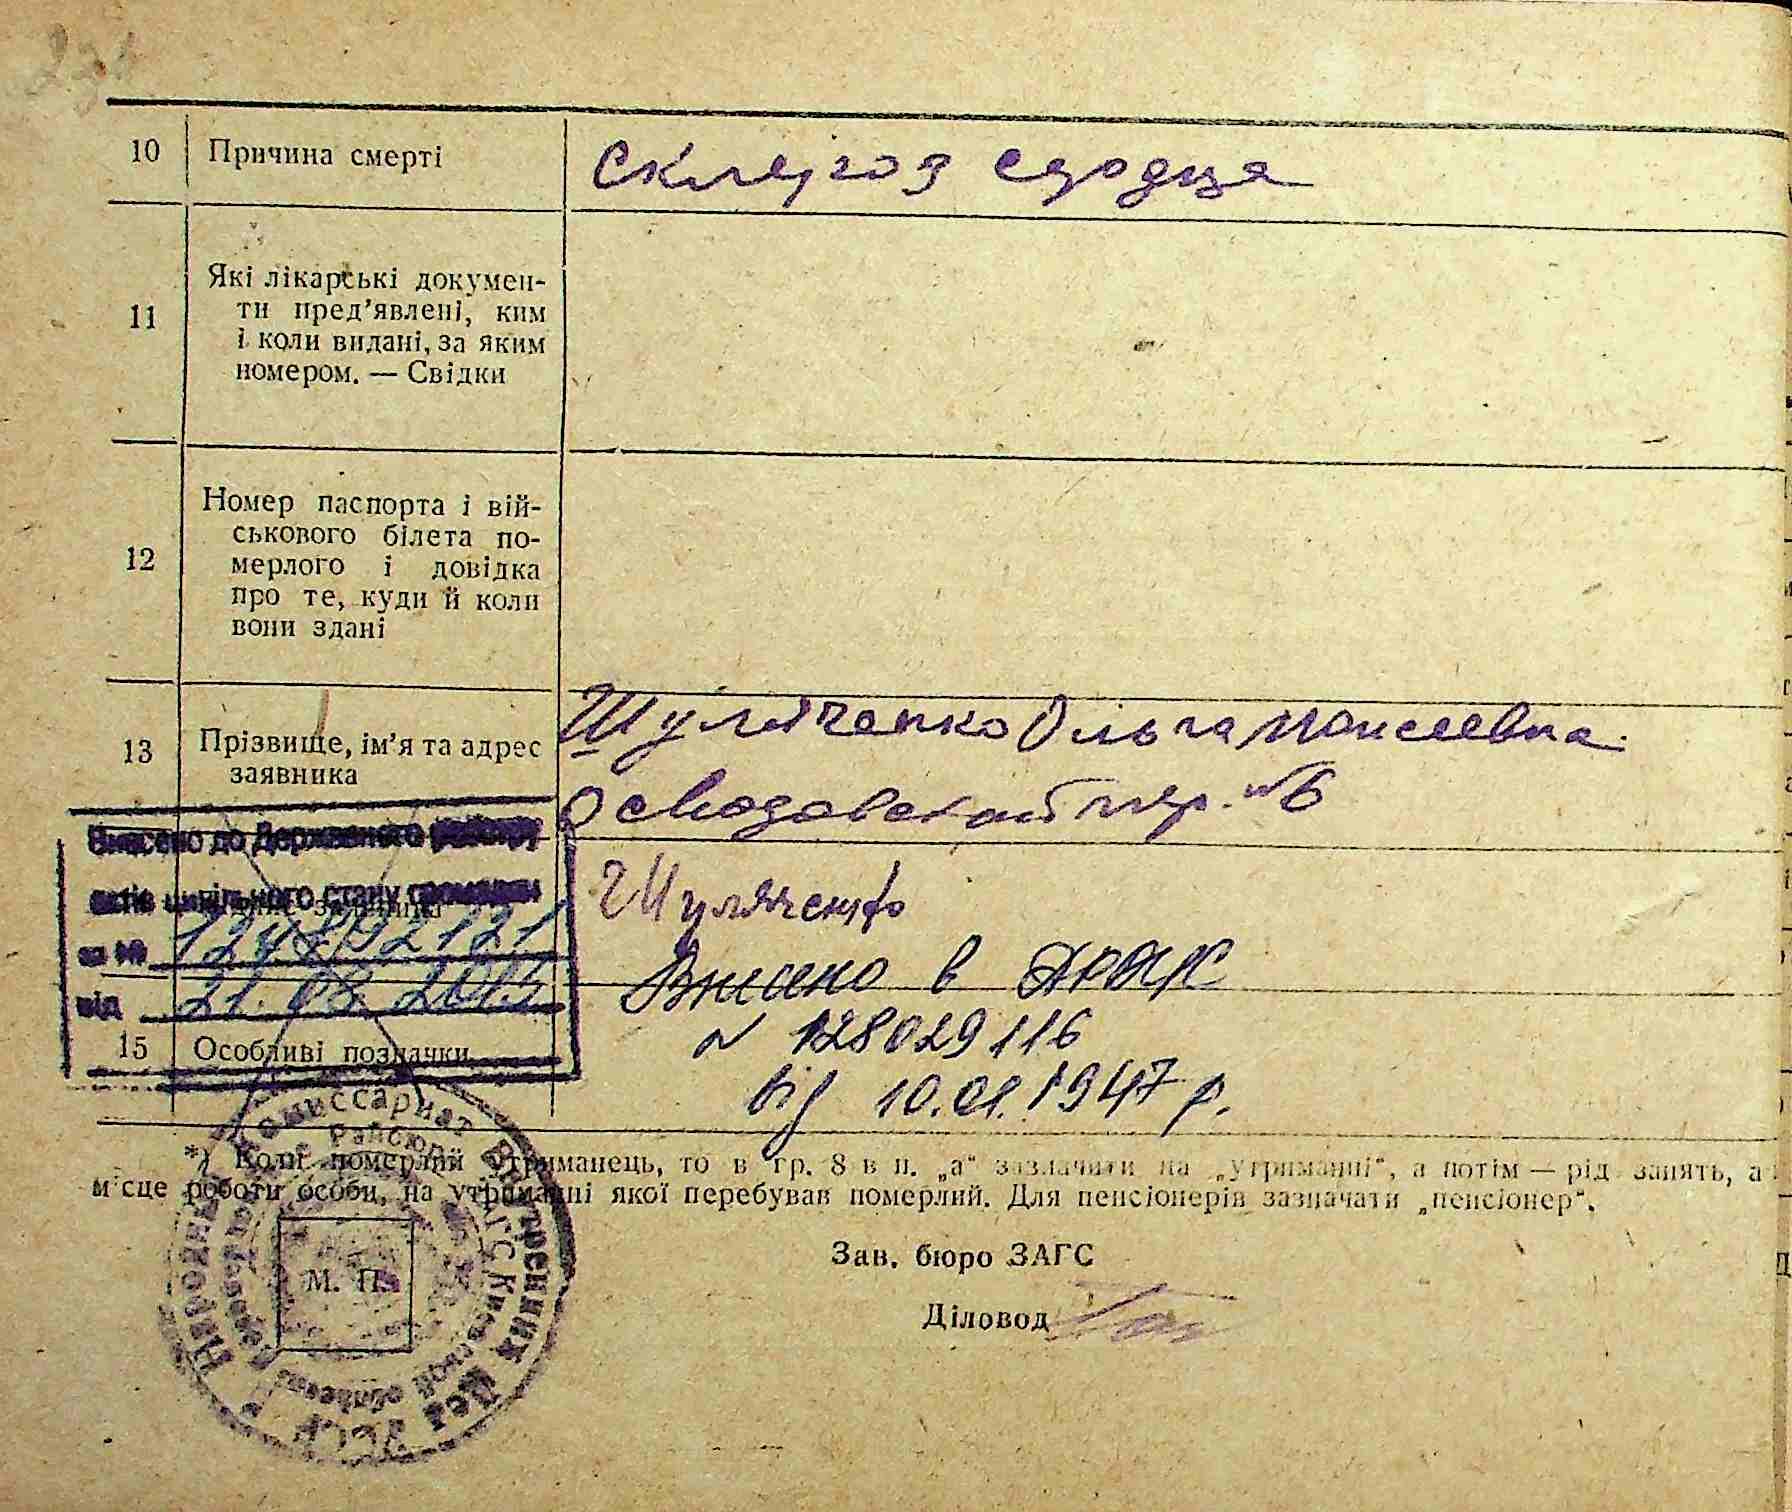 10 Причина смерті
Склероз сердца
11 Які лікарські докумен-
ти пред’явлені, ким
і коли видані, за яким
номером. — Свідки
12 Номер паспорта і вій-
ськового білета по-
мерлого і довідка
про те, куди й коли
вони здані
13 Прізвище, ім’я та адрес
заявника
Шулятченко Ольга Моисеевна.
пер. № 6
Внесено до Державного реєстру
актів цивільного стану громадян
за №
від 21. 08. 2013
Внесено в ДРАЦС
N 128029116
від 10.01.1947 р.
15 Особливі позначки
*) Коли померлий утриманець, то в гр. 8 в п. „а“ зазначити на „утриманні“, а потім — рід занять, а
місце роботи особи, на утриманні якої перебував померлий. Для пенсіонерів зазначати „пенсіонер“.
Зав. бюро ЗАГС
Діловод
М. П.
Народный Комиссариат Внутренних Дел УССР